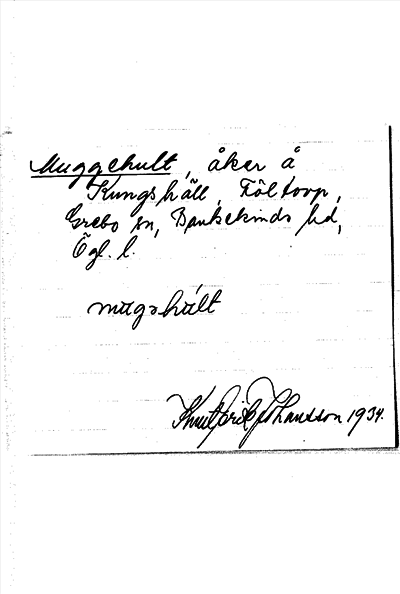 Muggehult, åker å
Kungshäll, Föltorp,
Grebo sn, Bankekinds hd,
Ögl. l.
mugəhúlt
Knut Eric Johansson 1934.